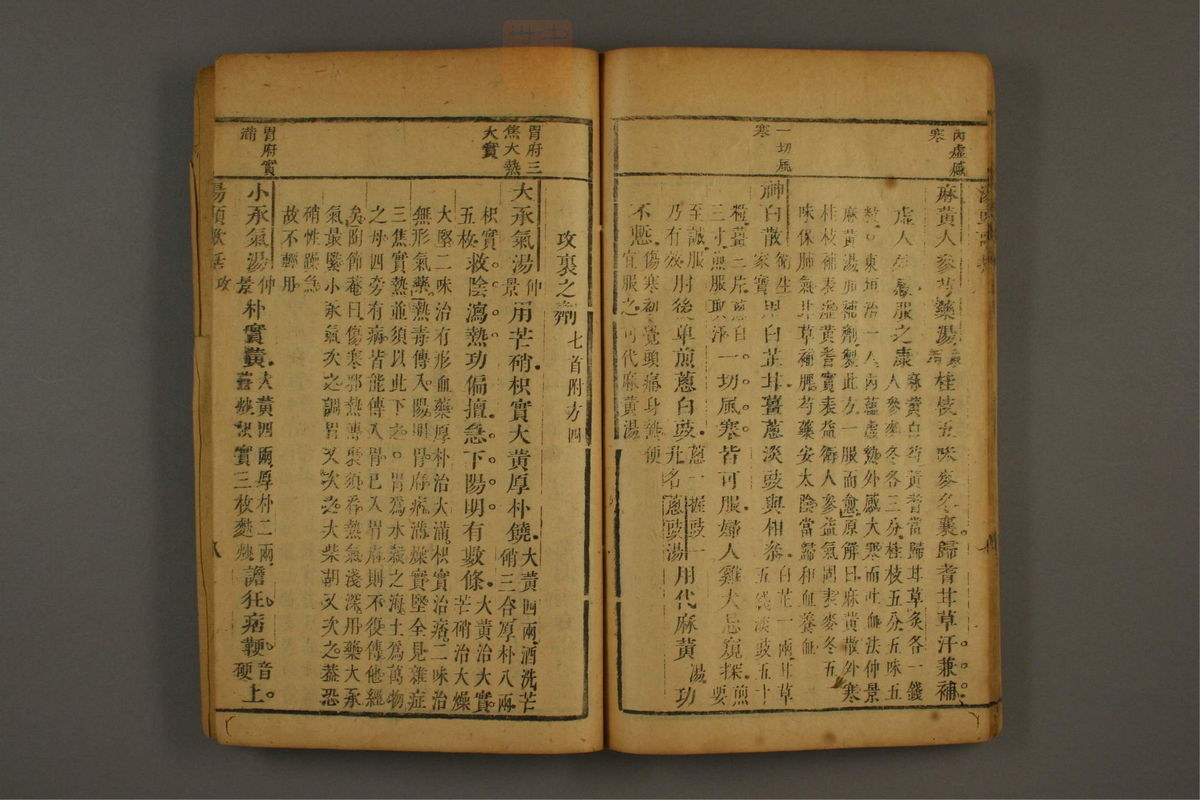 內虛感
寒
一切風
寒
麻黃人參芍藥湯
桂枝五味麥冬襄歸耆甘草汗兼補
虛人外感服之康
麻黃白芍黃耆當歸甘草炙各一錢
人參麥冬各三分桂枝五分五味五
粒東垣治一人內蘊虛熱外感大寒而吐血法仲景
麻黃湯加補劑製此方一服而愈原解曰麻黃散外寒
桂枝補表虛黃耆實表益衛人參益氣固表麥冬五
味保肺氣甘草補脾芍藥安太陰當歸和血養血
神白散
衛生
家寶
用白芷甘薑蔥淡豉與相參
白芷一兩甘草
五錢淡豉五十
粒薑三片蔥白
三寸煎服取汗
一切風寒皆可服婦人雞犬忌窺探
煎要
至誠服
乃有效
肘後單煎蔥白豉
蔥一握豉一
升名蔥豉湯
用代麻黃
湯
功
不慝
傷寒初覺頭痛身熱便
宜服之可代麻黃湯
胃府三
焦大熱
大實
胃府實
滿
攻裏之劑
七首附方四
大承氣湯
仲
景
用芒硝枳實大黃厚朴饒
大黃四兩酒洗芒
硝三合厚朴八兩
枳實
五枚
救陰瀉熱功偏擅急下陽明有數條
大黃治大實
芒硝治大燥
大堅二味治有形血藥厚朴治大滿枳實治痞二味治
無形氣藥熱毒傳入陽明胃府痞滿燥實堅全見雜症
三焦實熱並須以此下之胃為水穀之海土為萬物
之母四旁有病皆能傳入胃已入胃府則不復傳他經
矣陶節菴曰傷寒邪熱傳裏須看熱氣淺深用藥大承
氣最緊小承氣次之調胃又次之大柴胡又次之蓋恐
硝性躁急
故不輕用
小承氣湯
仲
景
朴實黃
大黃四兩厚朴二兩
薑炒枳實三枚麩炒
譫狂痞鞕
音
硬
上
湯頭歌括
攻
八